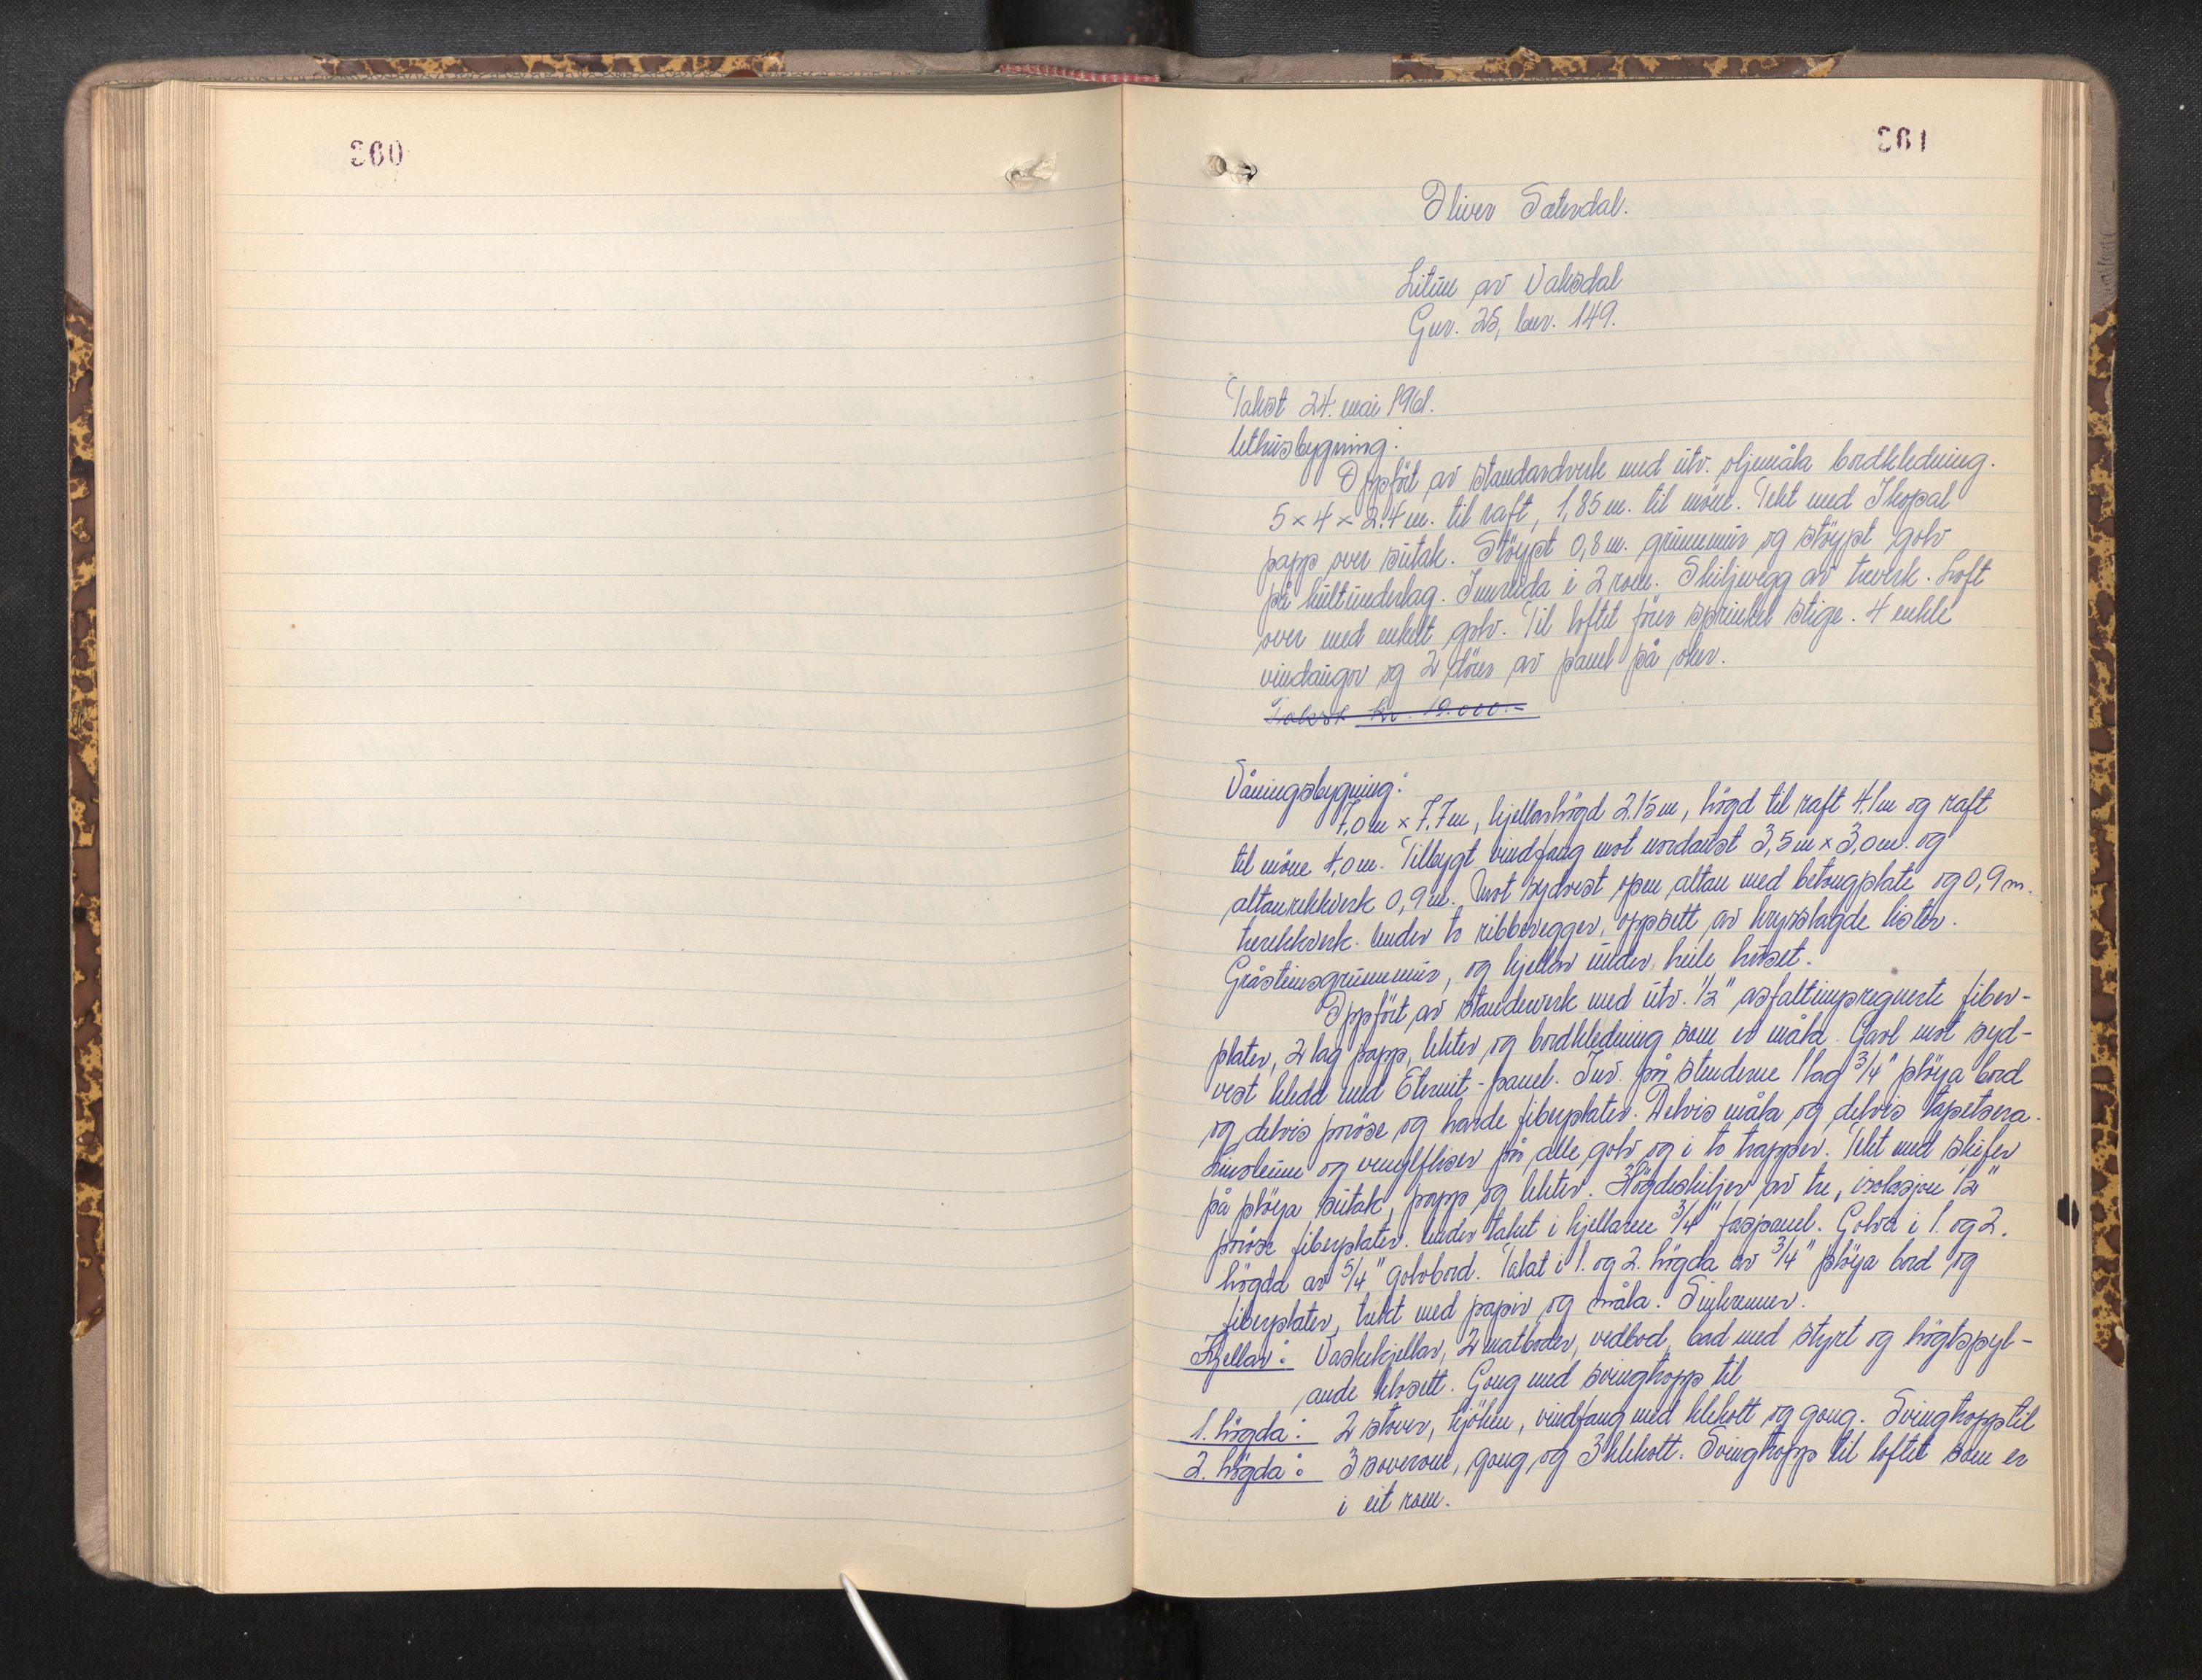 360
361
Oliver Sæterdal.
Litun av Vaksdal
Gnr. 25, bnr. 149.
Takst 24. mai 1961.
Uthusbygning:
Oppfört av standardverk med utv. oljemåla bordkledning.
5 × 4 × 2.4 m. til raft, 1,85 m. til möne. Tekt med Ikopal
papp over sutak. Stöypt 0,8 m. grunnmur og stöypt golv
på kultunderlag. Innreida i 2 rom. Skiljevegg av treverk. Loft
over med enkelt golv. Til loftet förer sprinkel stige. 4 enkle
vindaugor og 2 dörer av panel på oker.
Takst kr. 19.000.-
Våningsbygning:
7,0 m × 7,7 m, kjellarhögd 2.15 m, högd til raft 4.1 m og raft
til möne 4,0 m. Tilbygt vindfang mot nordaust 3,5 m × 3,0 m. og
altanrekkverk 0,9 m. Mot sydvest open altan med betongplate og 0,9 m.
trerekkverk. Under to ribbevegger, oppsett av kryssslagde lister.
Gråsteinsgrunnmur, og kjellar under heile huset.
Oppfört av standerverk med utv. 1/2" asfaltimpregnerte fiber-
plater, 2 lag papp, lekter og bordkledning som er måla. Gavl mot syd-
vest kledd med Eternit-panel. Inv. på stenderne 1 lag 3/4" plöya bord
og delvis poröse og harde fiberplater. Delvis måla og delvis tapetsera.
Linoleum og venylfliser på alle golv og i to trapper. Tekt med skifer
på plöya sutak, papp og lekter. Högdeskiljer av tre, isolasjon 1/2"
poröse fiberplater. Under taket i kjellaren 3/4" faspanel. Golva i 1. og 2.
högda av 5/4" golvbord. Taket i 1. og 2. högda av 3/4" plöya bord og
fiberplater, trekt med papir og måla. Sinkrenner.
Kjellar: Vaskekjellar, 2 matboder, vedbod, bad med styrt og högtspyl-
ande klosett. Gong med svingtropp til
1. högda: 2 stover, kjöken, vindfang med klekott og gong. Svingtropp til
2. högda: 3 soverom, gong og 3 klekott. Svingtropp til loftet som er
i eit rom.